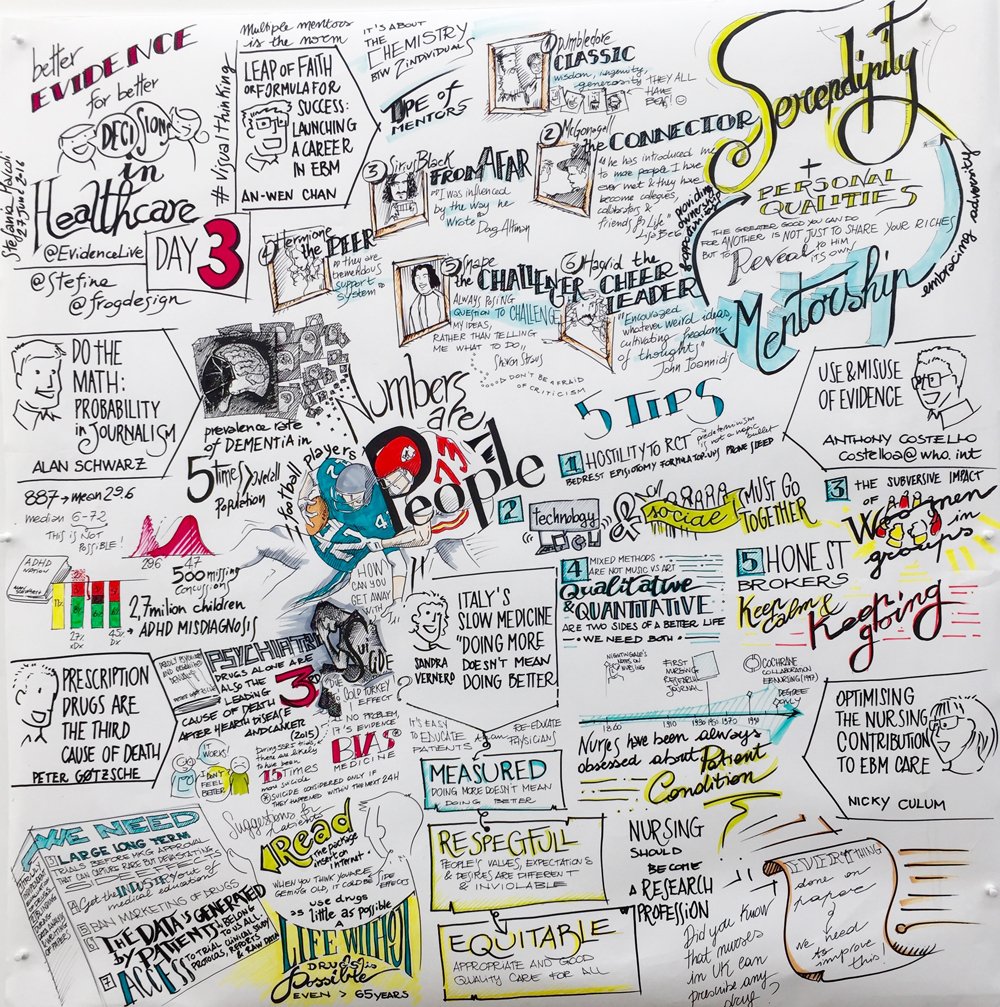 better
EVIDENCE
for better
DECISIONS
in
Healthcare
@EvidenceLive
DAY 3
@Stefine
@frogdesign
27 June 2016
#VisualThinking
Multiple mentors
is the norm
LEAP OF FAITH
OR FORMULA FOR
SUCCESS:
LAUNCHING
A CAREER
IN EBM
AN-WEN CHAN
IT'S ABOUT
THE CHEMISTRY
BTW 2 INDIVIDUALS
TYPE OF
MENTORS
1 Dumbledore
CLASSIC
wisdom, ingenuity,
generosity
THEY ALL
HAVE
2 McGonagall
the CONNECTOR
"he has introduced me
to more people I have
ever met & they have
become collegues,
collaborators &
friends for life"
3 Sirius Black
FROM AFAR
"I was influenced
by the way he
wrote"
Doug Altman
4 Hermione
the PEER
"they are
tremendous
support
system"
5 Snape
the CHALLENGER
ALWAYS POSING
QUESTION TO CHALLENGE
MY IDEAS,
RATHER THAN TELLING
ME WHAT TO DO"
Sharon Straus
DON'T BE AFRAID
OF CRITICISM
6 Hagrid the
CHEER
LEADER
"Encouraged
whatever weird ideas,
cultivating freedom
of thoughts"
John Ioannidis
Serendipity
+
PERSONAL
QUALITIES
providing
ownership
THE GREATER GOOD YOU CAN DO
FOR ANOTHER IS NOT JUST TO SHARE YOUR RICHES
BUT TO Reveal to HIM
ITS OWN
embracing adversity
Mentorship
DO THE
MATH:
PROBABILITY
in JOURNALISM
ALAN SCHWARZ
prevalence rate
of DEMENTIA in
5 times overall
Population
football players
Numbers
are
People
887 → mean 29.6
median 6-72
THIS IS NOT
POSSIBLE!
296
47
500 missing
concussions
ADHD
NATION
11%
27%
45%
2,7 milion children
ADHD MISDIAGNOSIS
HOW
CAN YOU
GET AWAY
WITH
5 TIPS
1 HOSTILITY TO RCT
BEDREST EPISIOTOMY FORMULA TOP-UPS PRONE SLEEP
2 technology
&
social
MUST GO
TOGETHER
3 THE SUBVERSIVE IMPACT
OF
Women
in
groups
4 MIXED METHODS
ARE NOT MUSIC VS ART
Qualitative
& QUANTITATIVE
ARE TWO SIDES OF A BETTER LIFE
WE NEED BOTH
5 HONEST
BROKERS
Keep
calm &
Keep
going
USE & MISUSE
OF EVIDENCE
ANTHONY COSTELLO
costelloa@who.int
PRESCRIPTION
DRUGS ARE
THE THIRD
CAUSE OF DEATH
PETER GØTZSCHE
PSYCHIATRIC
DRUGS ALONE ARE
ALSO THE 3RD
LEADING
CAUSE OF DEATH
AFTER HEARTH DISEASE
AND CANCER
(2015)
SUICIDE
COLD TURKEY
EFFECT
NO PROBLEM
IT'S EVIDENCE
BIAS
MEDICINE
IT
WORKS!
I DON'T
FEEL
BETTER
there are likely
to have been
15 TIMES
more suicide
SUICIDE CONSIDERED ONLY IF
THEY HAPPENED WITHIN THE NEXT 24H
ITALY'S
SLOW MEDICINE
"DOING MORE
DOESN'T MEAN
DOING BETTER"
SANDRA
VERNERO
IT'S EASY
to EDUCATE
PATIENTS
than
RE-EDUCATE
PHYSICIANS
MEASURED
DOING MORE DOESN'T MEAN
DOING BETTER
RESPECTFULL
PEOPLE'S VALUES, EXPECTATIONS
& DESIRES ARE DIFFERENT
& INVIOLABLE
EQUITABLE
APPROPRIATE AND GOOD
QUALITY CARE FOR ALL
NIGHTINGALE'S
NOTES ON
NURSING
FIRST
NURSING
RESEARCH
JOURNAL
COCHRANE
COLLABORATION
DEGREE
ONLY
1860
1910
Nurses have been always
obsessed about Patient
Condition
OPTIMISING
THE NURSING
CONTRIBUTION
TO EBM CARE
NICKY CULUM
NURSING
SHOULD
BECOME
A RESEARCH
PROFESSION
Did you know
that nurses
in UK can
prescribe any
drug?
EVERYTHING
done on
paper
we need
to improve
this!
WE NEED
LARGE LONG TERM
TRIALS, BEFORE MASS APPROVAL,
THAT CAN CAPTURE RARE BUT DEVASTATING
SIDE EFFECTS
Get the INDUSTRY out of
medical education!
BAN MARKETING OF DRUGS
THE DATA IS GENERATED
BY PATIENTS & BELONG
TO US ALL
ACCESS
TO TRIAL CLINICAL STUDY
PROTOCOLS, REPORTS
& RAW DATA
Suggestions for
patients
Read
the package
insert on
internet
WHEN YOU THINK YOU ARE
GETTING OLD, IT COULD BE SIDE
EFFECTS
use drugs
as little as possible
A
LIFE WITHOUT
DRUGS is
Possible
EVEN > 65 YEARS